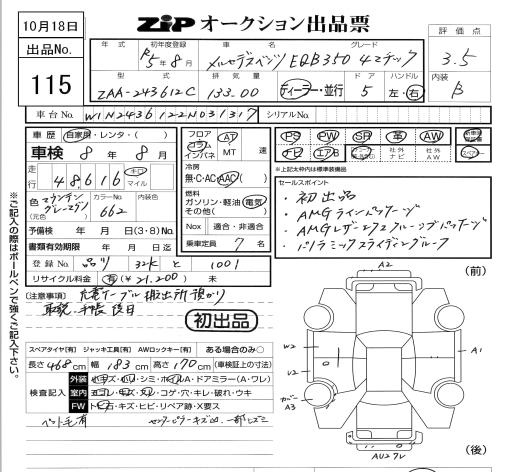 10月18日
ZIP オークション出品票
出品No.
115
評価点
3.5
内装
B
年式 初年度登録 車名 グレード
R5年8月 メルセデスベンツ EQB350 4マチック
型式 排気量 ドア ハンドル
ZAA-243612C 133.00 ディーラー・並行 5 左・右
車台No. W1N2436122N031317 シリアルNo.
車歴 自家用・レンタ・( )
車検 8年8月
走行 48,616 キロ マイル
色 マウンテングレー
(元色)
カラーNo. 662
内装色
予備検 年 月 日(3・8)No.
書類有効期限 年 月 日迄
登録No. 品川 32K と 1001
リサイクル料金 有(¥21,200) 未
フロア コラム インパネ
AT MT 速
冷房
無・C・AC(AAC)
燃料
ガソリン・軽油・電気
その他( )
Nox 適合・非適合
乗車定員 7名
PS PW SR 革 AW
ナビ エアB 社外ナビ 社外AW
スペアキー
※上記太枠内は標準装備品
セールスポイント
・初出品
・AMGラインパッケージ
・AMGレザーエクスクルーシブパッケージ
・パノラミックスライディングルーフ
(注意事項) 充電ケーブル搬出所預かり
取説 手帳後日
初出品
スペアタイヤ[有] ジャッキ工具[有] AWロックキー[有] ある場合のみ○
長さ468cm 幅183cm 高さ170cm(車検証上の寸法)
検査記入
外装 小キズ・凹・シミ・ホイルA・ドアミラー(A・ワレ)
室内 ヨゴレ・キズ・スレ・コゲ・穴・キレ・破れ・ウキ
FW トビ石・キズ・ヒビ・リペア跡・X要ス
ペット毛有 センターピラーキズ凹
※ご記入の際はボールペンで強くご記入下さい。
(前)
A2
W2
U2
A1
A3
AU2ワレ
(後)